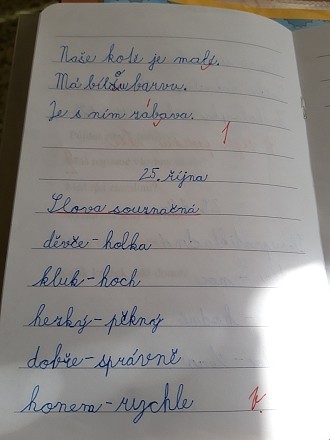 Naše kotě je malý.
Má bílou barvu.
Je s ním zábava.
1
25. října
Slova souznačná
děvče - holka
kluk - hoch
hezký - pěkný
dobře - správně
honem - rychle